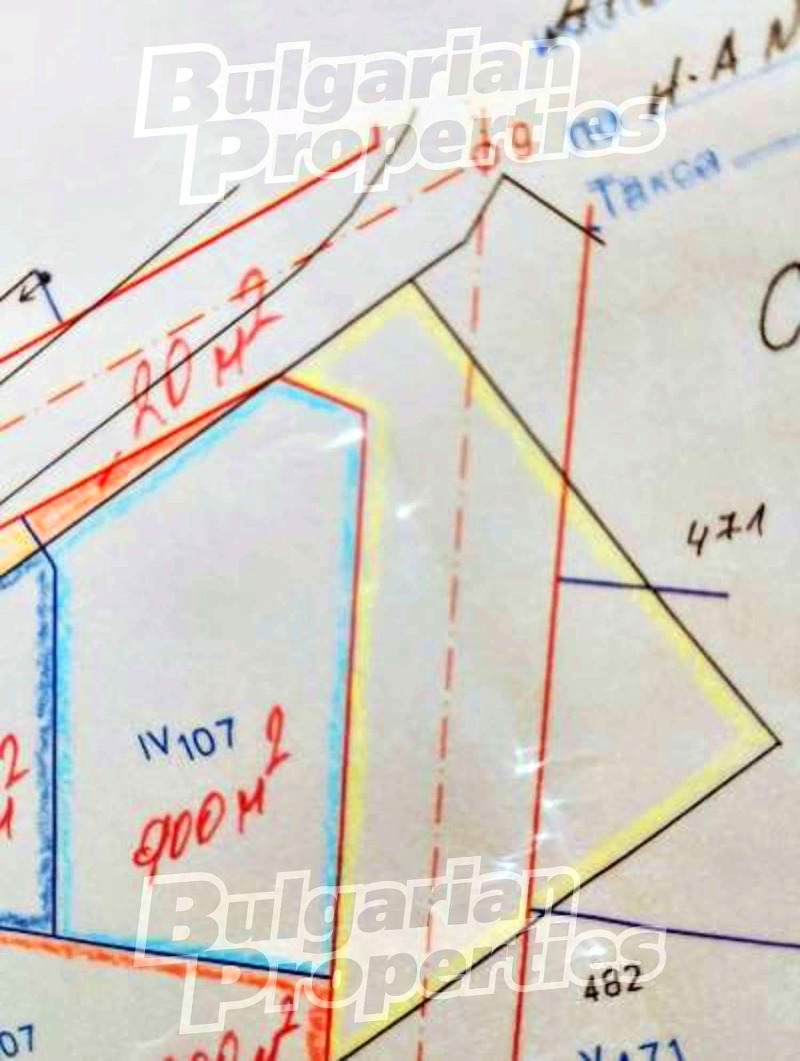 Bulgarian
Properties
Н.А
Такса
20 м²
471
IV107
900 м²
Bulgarian
Properties
482
07